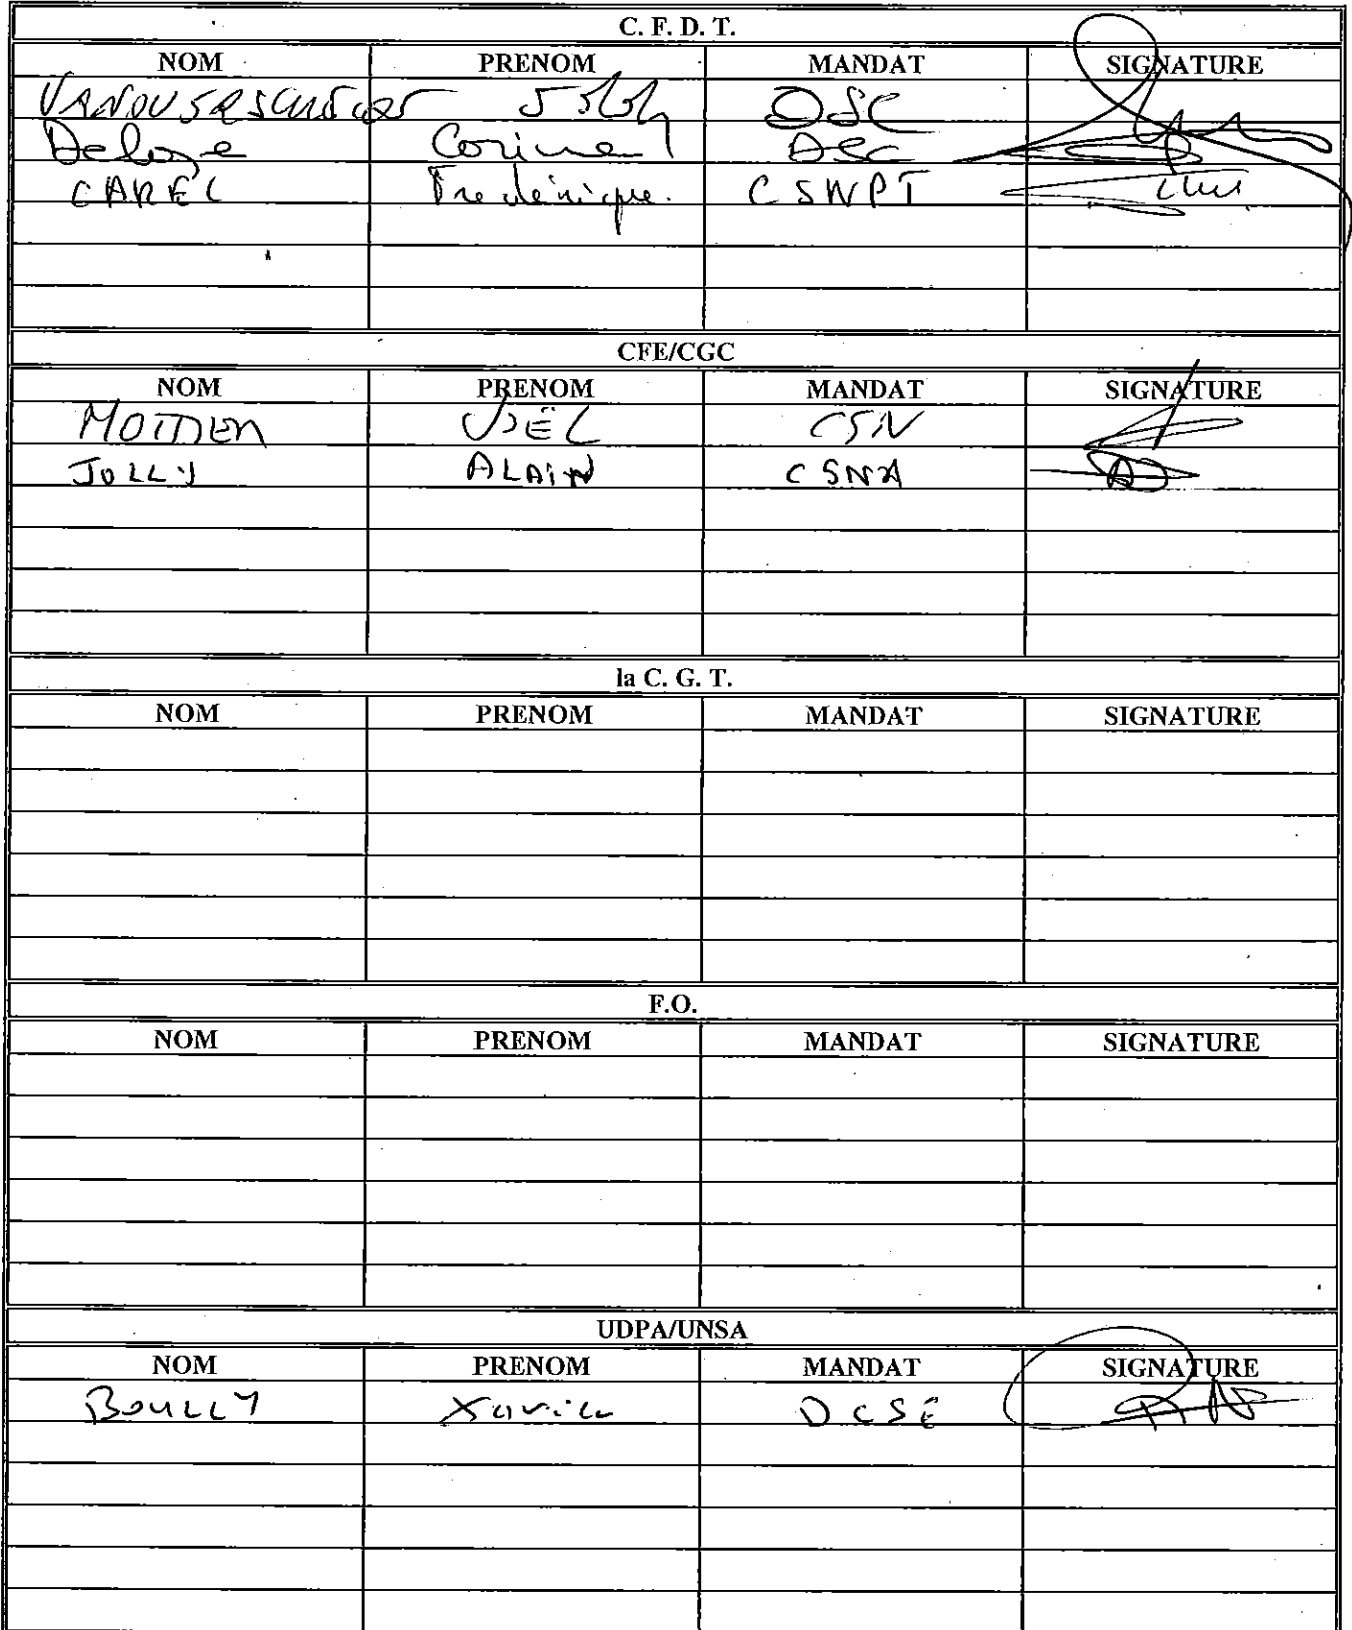 C. F. D. T.
NOM PRENOM MANDAT SIGNATURE
DSC
Deloge Corinne DSC
CAREL Frédérique. CSNPT
CFE/CGC
NOM PRENOM MANDAT SIGNATURE
CSN
JOLLY ALAIN CSNA
la C. G. T.
NOM PRENOM MANDAT SIGNATURE
F.O.
NOM PRENOM MANDAT SIGNATURE
UDPA/UNSA
NOM PRENOM MANDAT SIGNATURE
BOULLY Xavier DCSE